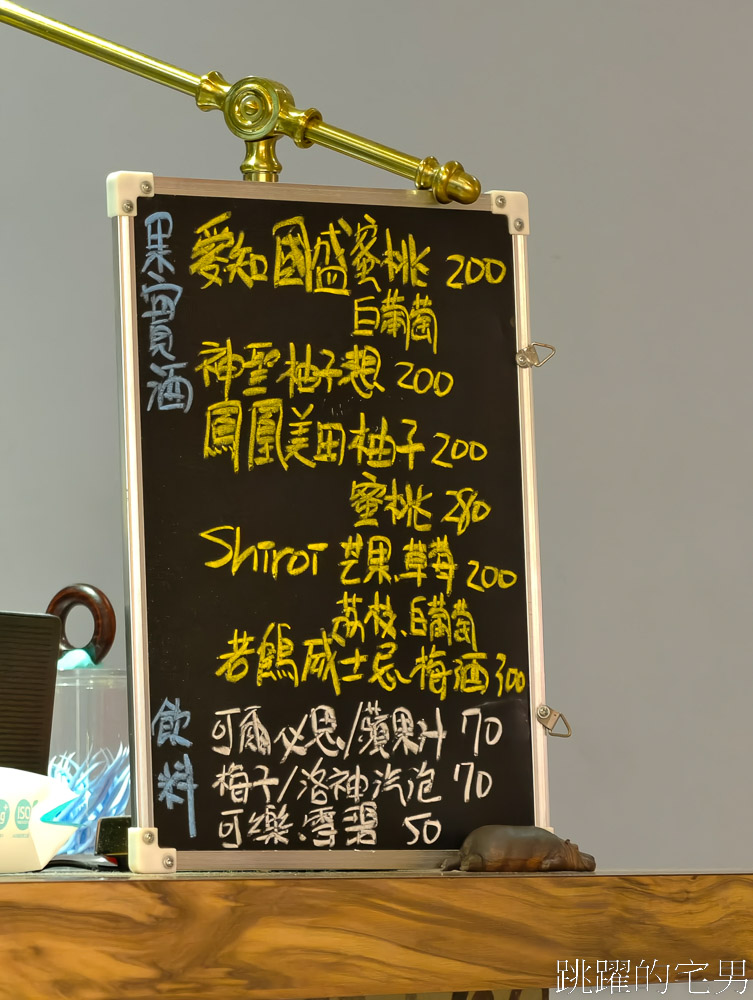 果實酒
愛知國盛蜜桃 200
白葡萄
神聖柚子想 200
鳳凰美田柚子 200
蜜桃 280
Shiroi 芒果、草莓 200
荔枝、白葡萄
老鶴威士忌、梅酒 300
飲料
可爾必思/蘋果汁 70
梅子/洛神汽泡 70
可樂、雪碧 50
ISO
跳躍的宅男